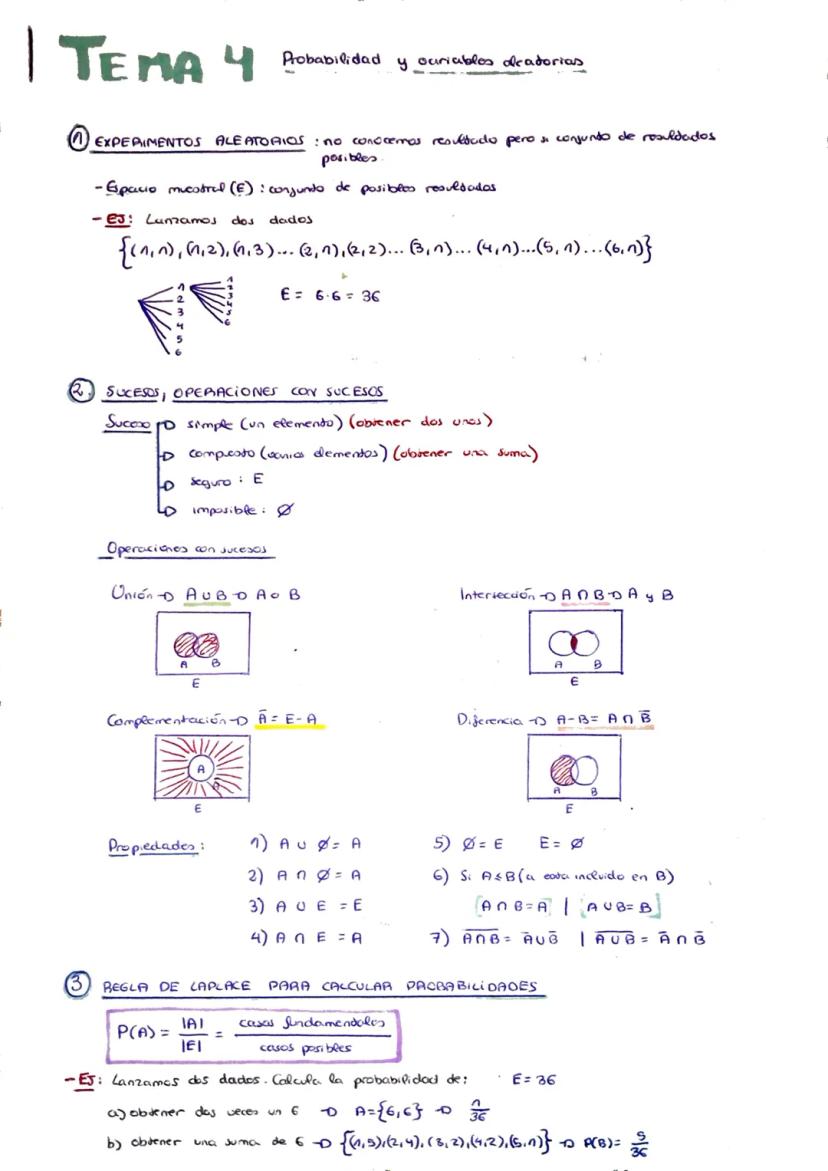 TEMA 4 Probabilidad y variables aleatorias
1 EXPERIMENTOS ALEATORIOS : no conocemos resultado pero si conjunto de resultados
posibles.
- Espacio muestral (E) : conjunto de posibles resultados
- EJ: Lanzamos dos dados
{(1,1), (1,2), (1,3)... (2,1), (2,2)... (3,1)... (4,1)...(5,1)...(6,1)}
1 1
2 2
3 3
4 4
5 5
6 6
E = 6·6 = 36
2. SUCESOS, OPERACIONES CON SUCESOS
Suceso → simple (un elemento) (obtener dos unos)
→ compuesto (varios elementos) (obtener una suma)
→ seguro : E
→ imposible : Ø
Operaciones con sucesos
Unión → A ∪ B → A o B Intersección → A ∩ B → A y B
A B A B
E E
Complementación → Ā = E - A Diferencia → A - B = A ∩ B̄
A Ā A B
E E
Propiedades: 1) A ∪ Ø = A 5) Ø = E E = Ø
2) A ∩ Ø = A 6) Si A ≤ B (a esta incluido en B)
3) A ∪ E = E [A ∩ B = A | A ∪ B = B]
4) A ∩ E = A 7) A̅∩̅B̅ = Ā ∪ B̄ | A̅∪̅B̅ = Ā ∩ B̄
3 REGLA DE LAPLACE PARA CALCULAR PROBABILIDADES
P(A) = |A| / |E| = casos fundamentales / casos posibles
- EJ: Lanzamos dos dados. Calcula la probabilidad de: E = 36
a) obtener dos veces un 6 → A = {6,6} → 1/36
b) obtener una suma de 6 → {(1,5),(2,4),(3,2),(4,2),(5,1)} → P(B) = 5/36